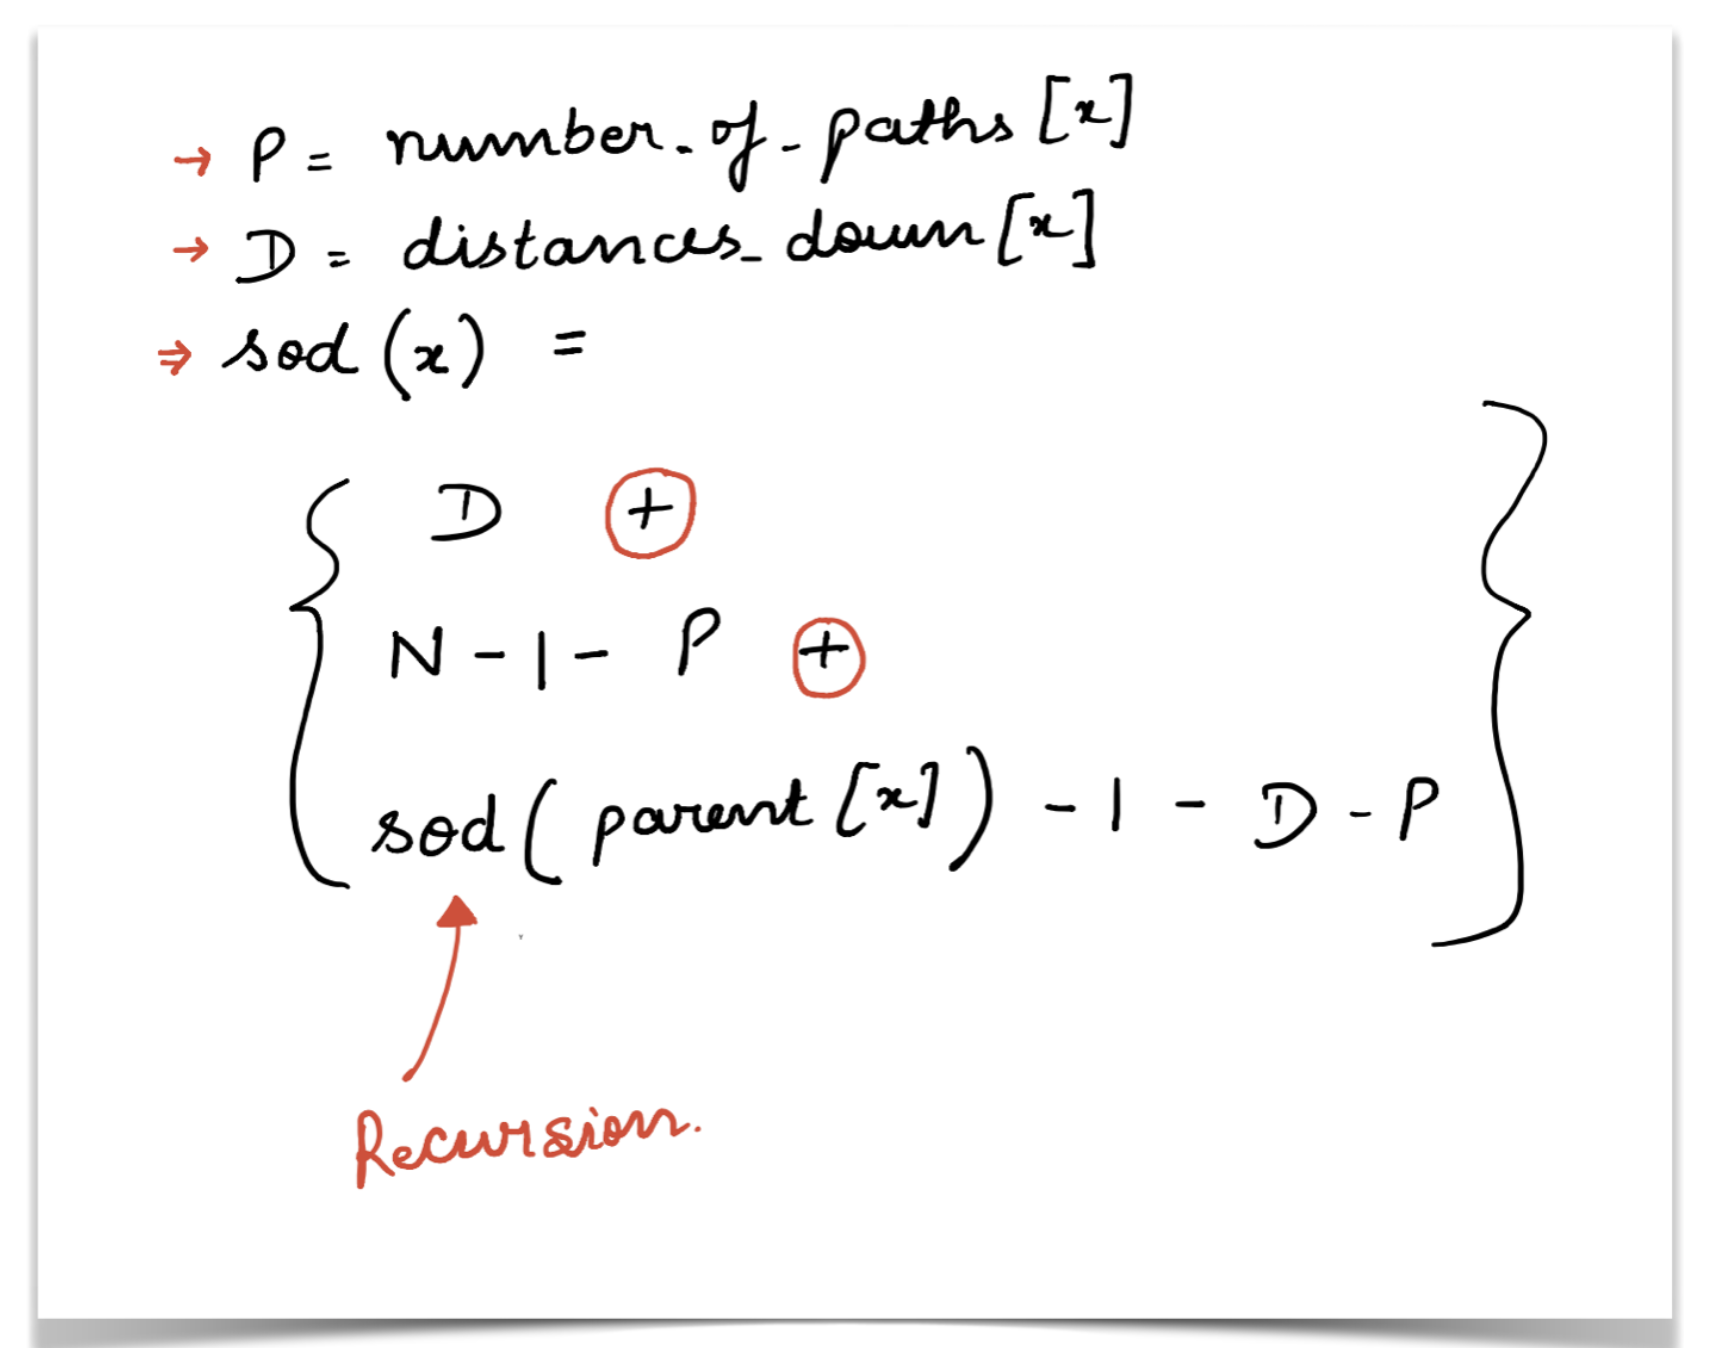 → P = number_of_paths [x]
→ D = distances_down [x]
⇒ sod (x) =
D +
N - 1 - P +
sod ( parent [x] ) - 1 - D - P
Recursion.